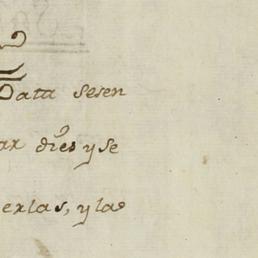 Data sesen
ax dies y se
exlas, y las